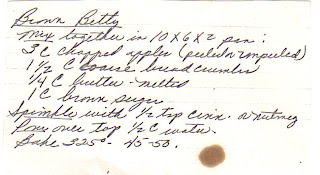 Brown Betty
Mix together in 10 x 6 x 2 pan:
3 C chopped apples (peeled or unpeeled)
1 1/2 C coarse bread crumbs
1/4 C butter - melted
1 C brown sugar
Sprinkle with 1/2 tsp cinn. or nutmeg
Pour over top 1/2 C water.
Bake 325° - 45-50.